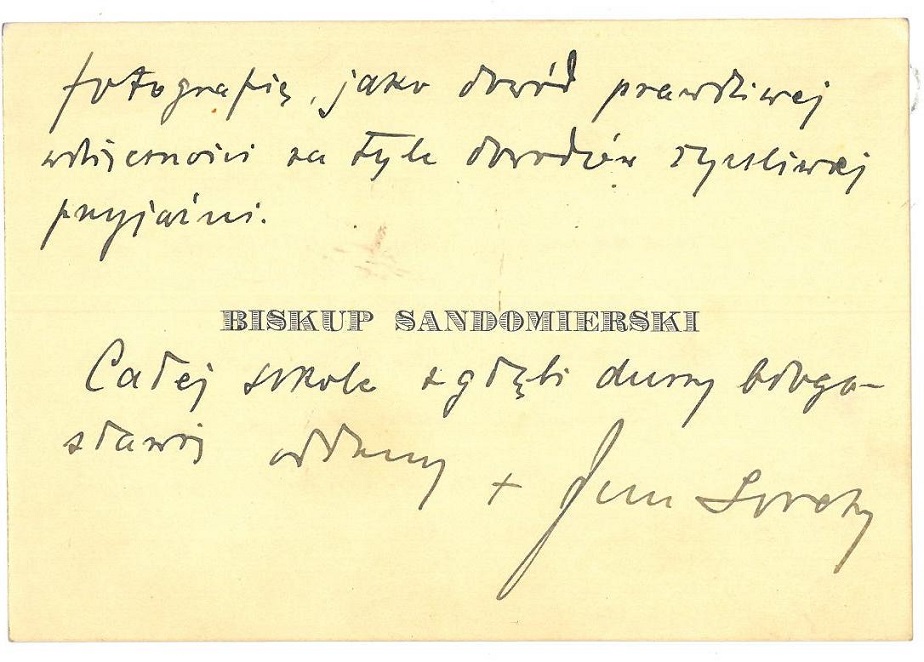 fotografię, jako dowód prawdziwej
wdzięczności za tyle dowodów życzliwej
przyjaźni.
BISKUP SANDOMIERSKI
Całej szkole z głębi duszy błogo-
sławię oddany + Jan Lorek